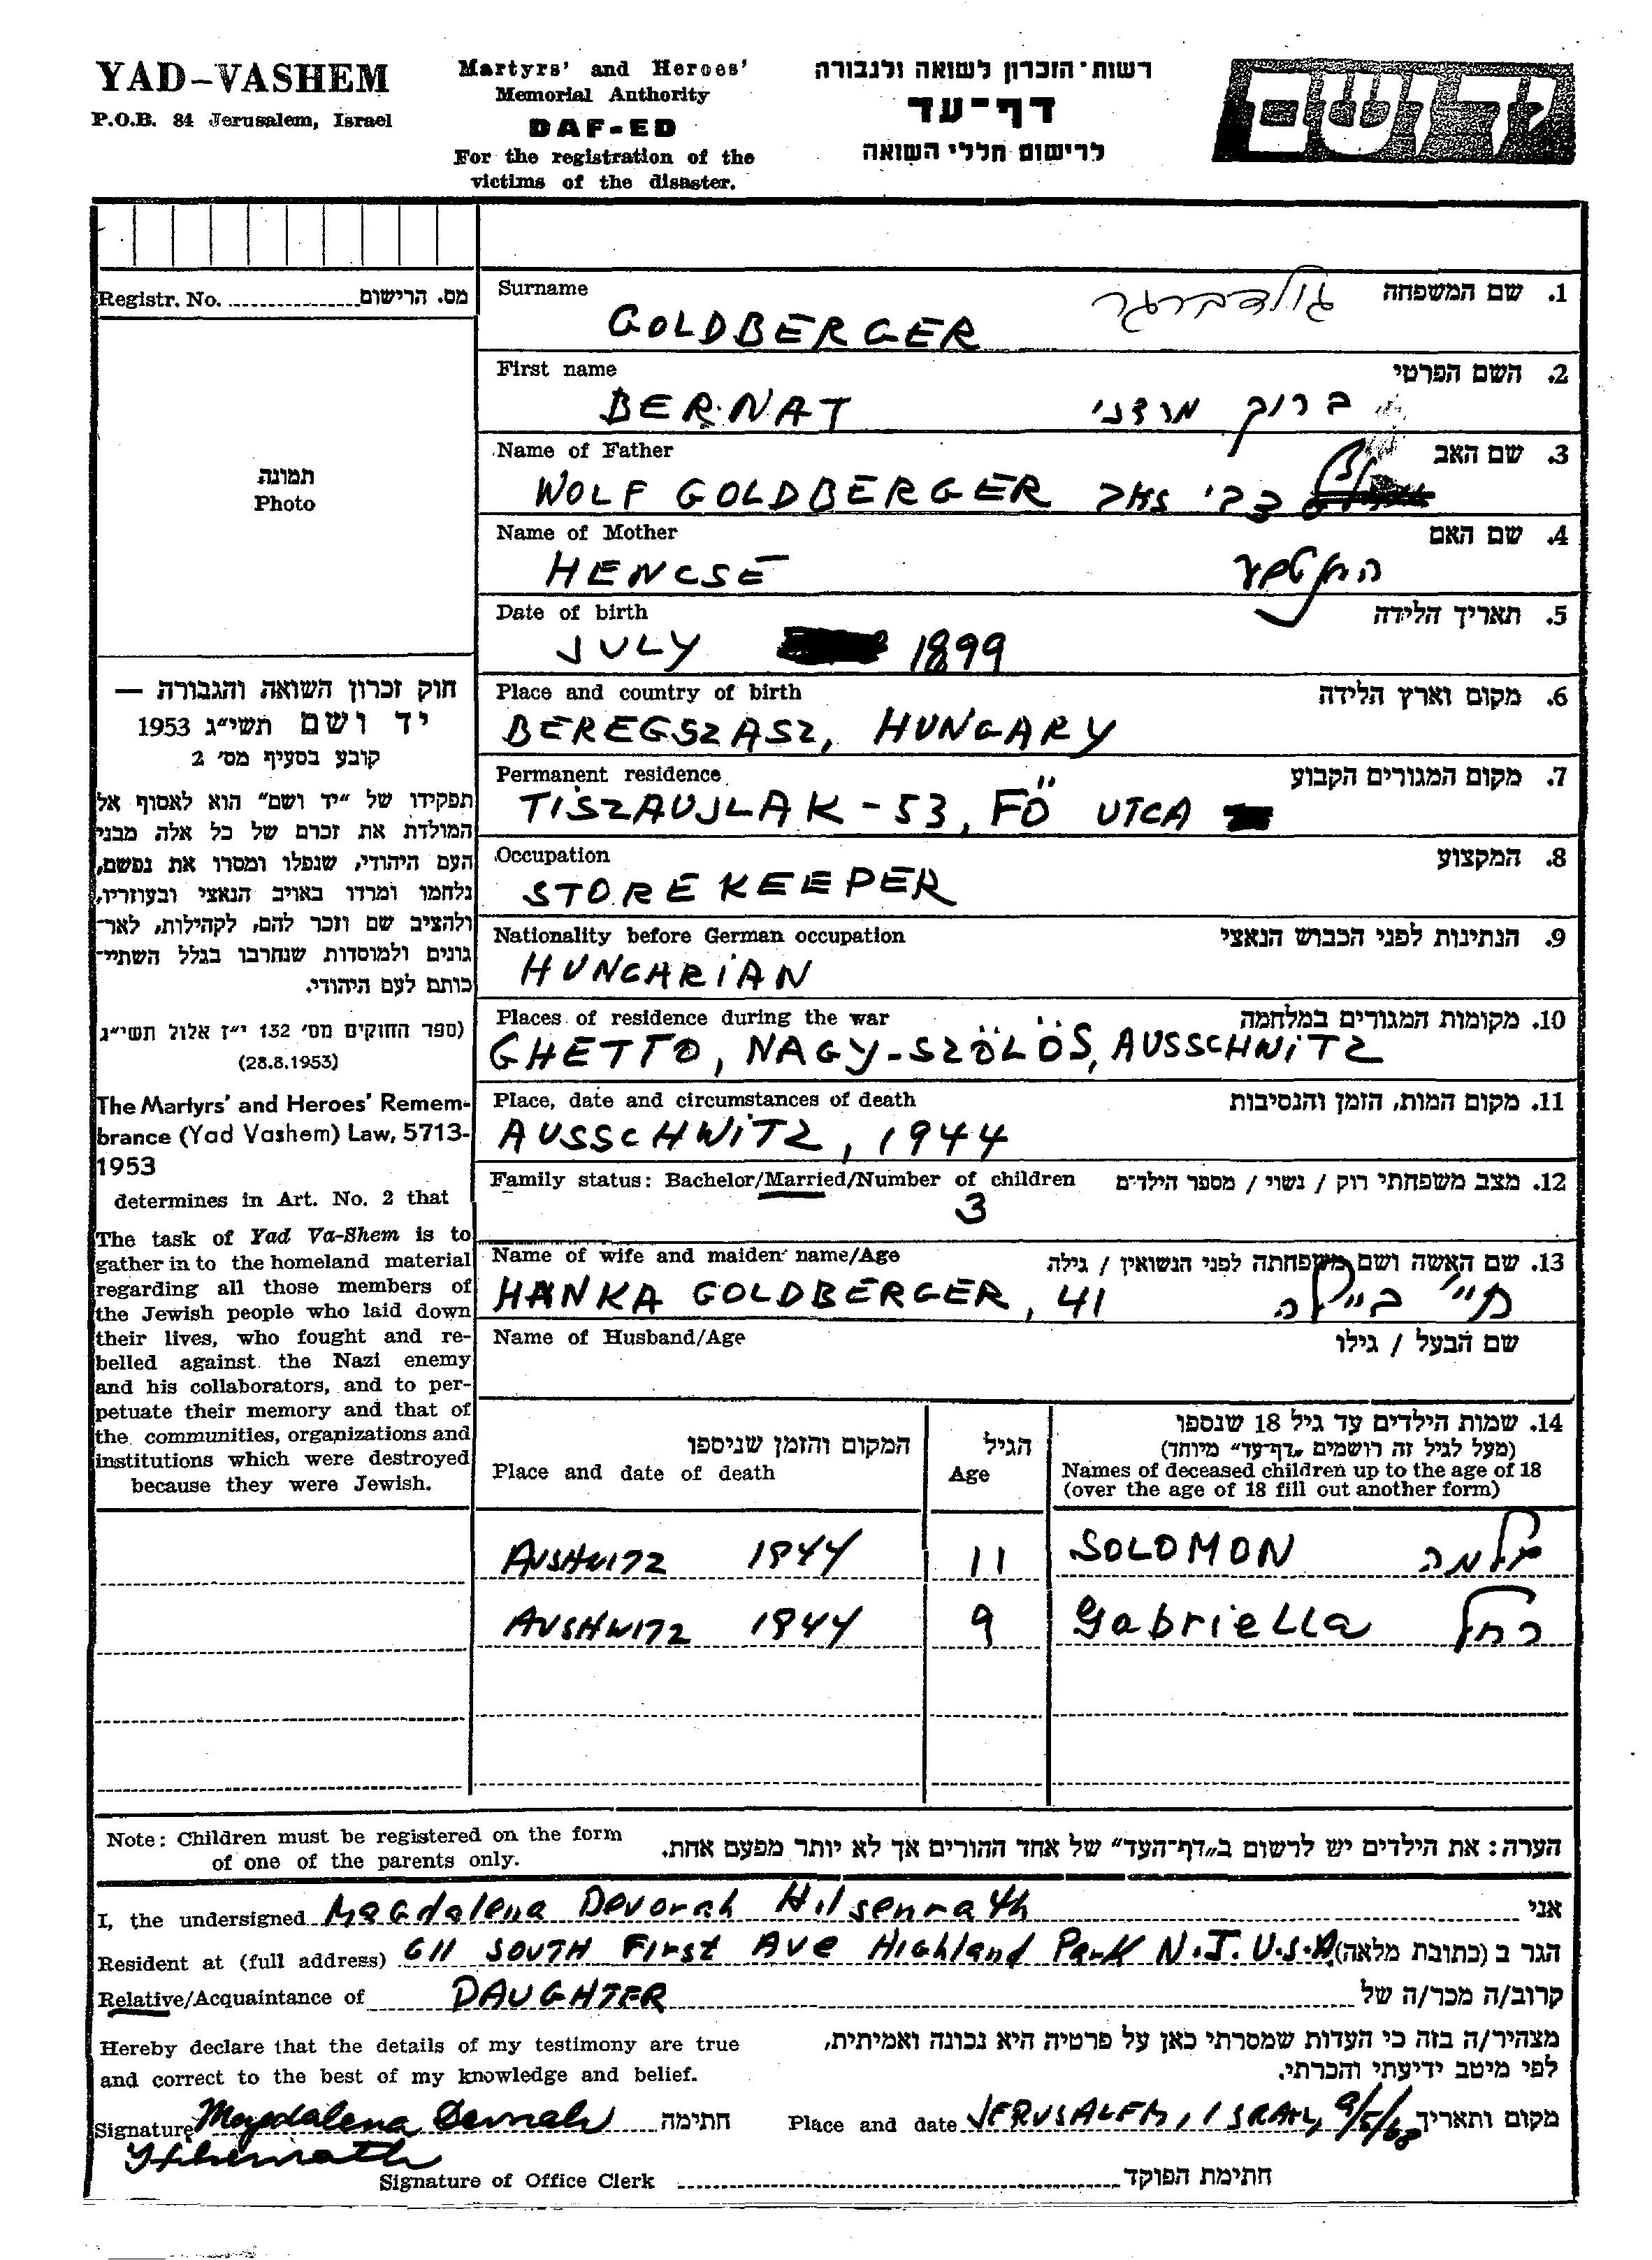 YAD-VASHEM
P.O.B. 84 Jerusalem, Israel
Martyrs' and Heroes'
Memorial Authority
DAF-ED
For the registration of the
victims of the disaster.
רשות-הזכרון לשואה ולגבורה
דף-עד
לרישום חללי השואה
יד ושם
Registr. No. מס. הרישום
תמונה
Photo
חוק זכרון השואה והגבורה —
יד ושם תשי״ג 1953
קובע בסעיף מס׳ 2
תפקידו של ״יד ושם״ הוא לאסוף אל
המולדת את זכרם של כל אלה מבני
העם היהודי, שנפלו ומסרו את נפשם,
נלחמו ומרדו באויב הנאצי ובעוזריו,
ולהציב שם וזכר להם, לקהילות, לאר-
גונים ולמוסדות שנחרבו בגלל השתיי-
כותם לעם היהודי.
(ספר החוקים מס׳ 132 י״ז אלול תשי״ג
(28.8.1953)
The Martyrs' and Heroes' Remem-
brance (Yad Vashem) Law, 5713-
1953
determines in Art. No. 2 that
The task of Yad Va-Shem is to
gather in to the homeland material
regarding all those members of
the Jewish people who laid down
their lives, who fought and re-
belled against the Nazi enemy
and his collaborators, and to per-
petuate their memory and that of
the communities, organizations and
institutions which were destroyed
because they were Jewish.
Surname 1. שם המשפחה
GOLDBERGER גולדברגר
First name 2. השם הפרטי
BERNAT ברוך
Name of Father 3. שם האב
WOLF GOLDBERGER צבי זאב
Name of Mother 4. שם האם
HENCSE
Date of birth 5. תאריך הלידה
JULY 1899
Place and country of birth 6. מקום וארץ הלידה
BEREGSZASZ, HUNGARY
Permanent residence 7. מקום המגורים הקבוע
TISZAUJLAK - 53, FÖ UTCA
Occupation 8. המקצוע
STOREKEEPER
Nationality before German occupation 9. הנתינות לפני הכבוש הנאצי
HUNGARIAN
Places of residence during the war 10. מקומות המגורים במלחמה
GHETTO, NAGY-SZÖLÖS, AUSSCHWITZ
Place, date and circumstances of death 11. מקום המות, הזמן והנסיבות
AUSSCHWITZ, 1944
Family status: Bachelor/Married/Number of children 12. מצב משפחתי רוק / נשוי / מספר הילדים
3
Name of wife and maiden name/Age 13. שם האשה ושם משפחתה לפני הנשואין / גילה
HANKA GOLDBERGER, 41
Name of Husband/Age שם הבעל / גילו
המקום והזמן שניספו
Place and date of death
הגיל
Age
14. שמות הילדים עד גיל 18 שנספו
(מעל לגיל זה רושמים ״דף-עד״ מיוחד)
Names of deceased children up to the age of 18
(over the age of 18 fill out another form)
AUSHWITZ 1944 11 SOLOMON שלמה
AUSHWITZ 1944 9 Gabriella רחל
Note: Children must be registered on the form
of one of the parents only.
הערה: את הילדים יש לרשום ב״דף-העד״ של אחד ההורים אך לא יותר מפעם אחת.
I, the undersigned Magdalena Devorah Hilsenrath אני
Resident at (full address) 611 SOUTH First Ave Highland Park N.J. U.S.A הגר ב (כתובת מלאה)
Relative/Acquaintance of DAUGHTER קרוב/ה מכר/ה של
Hereby declare that the details of my testimony are true
and correct to the best of my knowledge and belief.
מצהיר/ה בזה כי העדות שמסרתי כאן על פרטיה היא נכונה ואמיתית,
לפי מיטב ידיעתי והכרתי.
Signature Magdalena Devorah חתימה Place and date JERUSALEM, ISRAEL 9/5/68 מקום ותאריך
Hilsenrath
Signature of Office Clerk חתימת הפוקד